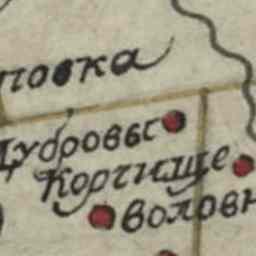 повка
Дубровыс
Корчище
Воловн